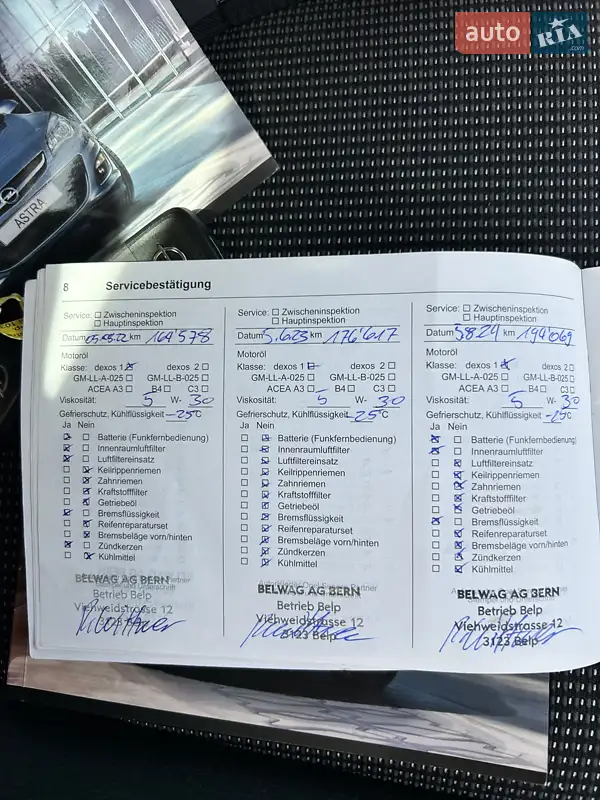 auto RIA .com
ASTRA
8 Servicebestätigung
Service: ☐ Zwischeninspektion
☐ Hauptinspektion
Datum 05.08.22 km 164'578
Motoröl
Klasse: dexos 1 ☒ dexos 2 ☐
GM-LL-A-025 ☐ GM-LL-B-025 ☐
ACEA A3 ☐ B4 ☐ C3 ☐
Viskosität: 5 W- 30
Gefrierschutz, Kühlflüssigkeit -25°C
Ja Nein
Batterie (Funkfernbedienung)
Innenraumluftfilter
Luftfiltereinsatz
Keilrippenriemen
Zahnriemen
Kraftstofffilter
Getriebeöl
Bremsflüssigkeit
Reifenreparaturset
Bremsbeläge vorn/hinten
Zündkerzen
Kühlmittel
BELWAG AG BERN
Betrieb Belp
Viehweidstrasse 12
3123 Belp
Service: ☐ Zwischeninspektion
☐ Hauptinspektion
Datum 5.6.23 km 176'617
Motoröl
Klasse: dexos 1 ☒ dexos 2 ☐
GM-LL-A-025 ☐ GM-LL-B-025 ☐
ACEA A3 ☐ B4 ☐ C3 ☐
Viskosität: 5 W- 30
Gefrierschutz, Kühlflüssigkeit -25°C
Ja Nein
Batterie (Funkfernbedienung)
Innenraumluftfilter
Luftfiltereinsatz
Keilrippenriemen
Zahnriemen
Kraftstofffilter
Getriebeöl
Bremsflüssigkeit
Reifenreparaturset
Bremsbeläge vorn/hinten
Zündkerzen
Kühlmittel
BELWAG AG BERN
Betrieb Belp
Viehweidstrasse 12
3123 Belp
Service: ☐ Zwischeninspektion
☐ Hauptinspektion
Datum 5.8.24 km 194'069
Motoröl
Klasse: dexos 1 ☒ dexos 2 ☐
GM-LL-A-025 ☐ GM-LL-B-025 ☐
ACEA A3 ☐ B4 ☐ C3 ☐
Viskosität: 5 W- 30
Gefrierschutz, Kühlflüssigkeit -25°C
Ja Nein
Batterie (Funkfernbedienung)
Innenraumluftfilter
Luftfiltereinsatz
Keilrippenriemen
Zahnriemen
Kraftstofffilter
Getriebeöl
Bremsflüssigkeit
Reifenreparaturset
Bremsbeläge vorn/hinten
Zündkerzen
Kühlmittel
BELWAG AG BERN
Betrieb Belp
Viehweidstrasse 12
3123 Belp